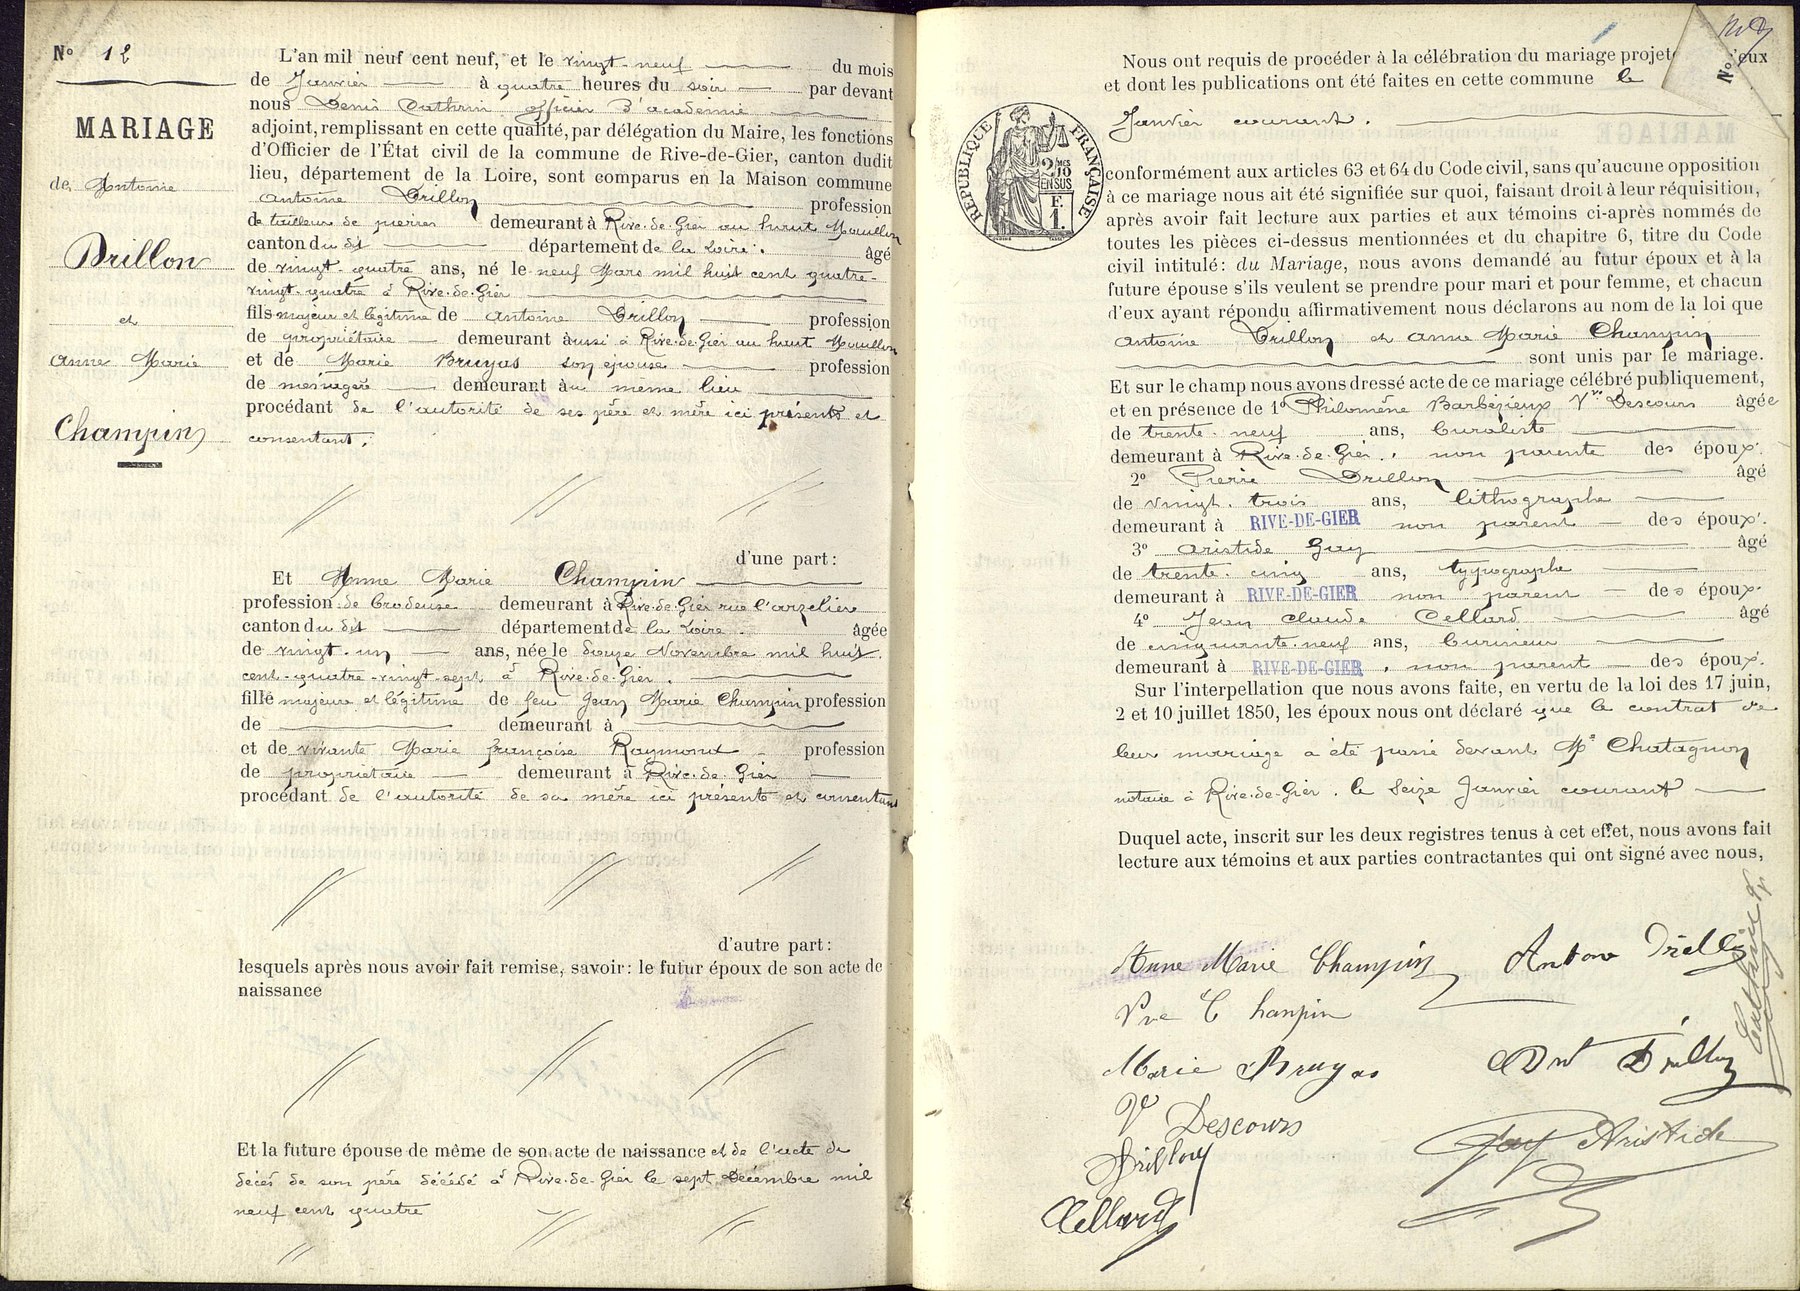 N° 12
MARIAGE
de Antoine
Drillon
et
Anne Marie
Champin
L'an mil neuf cent neuf, et le vingt-neuf du mois
de Janvier à quatre heures du soir par devant
nous Denis Cathrin officier d'académie
adjoint, remplissant en cette qualité, par délégation du Maire, les fonctions
d'Officier de l'État civil de la commune de Rive-de-Gier, canton dudit
lieu, département de la Loire, sont comparus en la Maison commune
Antoine Drillon profession
de tailleur de pierres demeurant à Rive-de-Gier au haut Mouillon
canton du dit département de la Loire. âgé
de vingt-quatre ans, né le neuf Mars mil huit cent quatre-
vingt-quatre à Rive-de-Gier
fils majeur et légitime de Antoine Drillon profession
de propriétaire demeurant aussi à Rive-de-Gier au haut Mouillon
et de Marie Bruyas son épouse profession
de ménagère demeurant au même lieu
procédant de l'autorité de ses père et mère ici présents et
consentant.
d'une part:
Et Anne Marie Champin
profession de brodeuse demeurant à Rive-de-Gier rue l'arzelier
canton du dit département de la Loire. âgée
de vingt-un ans, née le douze Novembre mil huit
cent-quatre-vingt-sept à Rive-de-Gier.
fille majeure et légitime de feu Jean Marie Champin profession
de demeurant à
et de vivante Marie françoise Raymond profession
de propriétaire demeurant à Rive-de-Gier
procédant de l'autorité de sa mère ici présente et consentant
d'autre part:
lesquels après nous avoir fait remise, savoir: le futur époux de son acte de
naissance
Et la future épouse de même de son acte de naissance et de l'acte de
décès de son père décédé à Rive-de-Gier le sept Décembre mil
neuf cent quatre
Nous ont requis de procéder à la célébration du mariage projeté eux
N°
et dont les publications ont été faites en cette commune le
Janvier courant.
RÉPUBLIQUE FRANÇAISE
2/10 MES
EN SUS
F.
1.
conformément aux articles 63 et 64 du Code civil, sans qu'aucune opposition
à ce mariage nous ait été signifiée sur quoi, faisant droit à leur réquisition,
après avoir fait lecture aux parties et aux témoins ci-après nommés de
toutes les pièces ci-dessus mentionnées et du chapitre 6, titre du Code
civil intitulé: du Mariage, nous avons demandé au futur époux et à la
future épouse s'ils veulent se prendre pour mari et pour femme, et chacun
d'eux ayant répondu affirmativement nous déclarons au nom de la loi que
Antoine Drillon et Anne Marie Champin
sont unis par le mariage.
Et sur le champ nous avons dressé acte de ce mariage célébré publiquement,
et en présence de 1° Philomène Barbézieux Vve Descours âgée
de trente-neuf ans, buraliste
demeurant à Rive-de-Gier, non parente des époux.
2° Pierre Drillon âgé
de vingt-trois ans, lithographe
demeurant à RIVE-DE-GIER non parent des époux.
3° Aristide Guy âgé
de trente-cinq ans, typographe
demeurant à RIVE-DE-GIER non parent des époux.
4° Jean Claude Cellard âgé
de cinquante-neuf ans, burineur
demeurant à RIVE-DE-GIER, non parent des époux.
Sur l'interpellation que nous avons faite, en vertu de la loi des 17 juin,
2 et 10 juillet 1850, les époux nous ont déclaré que le contrat de
leur mariage a été passé devant Me Chatagnon
notaire à Rive-de-Gier, le Seize Janvier courant
Duquel acte, inscrit sur les deux registres tenus à cet effet, nous avons fait
lecture aux témoins et aux parties contractantes qui ont signé avec nous,
Anne Marie Champin Antoine Drillon
Vve Champin
Marie Bruyas Ant Drillon
Ve Descours
Drillon Guy Aristide
Cellard
Cathrin